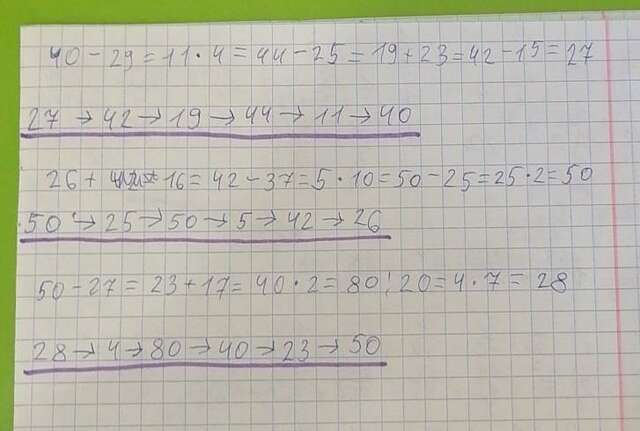 40 - 29 = 11 · 4 = 44 - 25 = 19 + 23 = 42 - 15 = 27
27 → 42 → 19 → 44 → 11 → 40
26 + 16 = 42 - 37 = 5 · 10 = 50 - 25 = 25 · 2 = 50
50 → 25 → 50 → 5 → 42 → 26
50 - 27 = 23 + 17 = 40 · 2 = 80 : 20 = 4 · 7 = 28
28 → 4 → 80 → 40 → 23 → 50